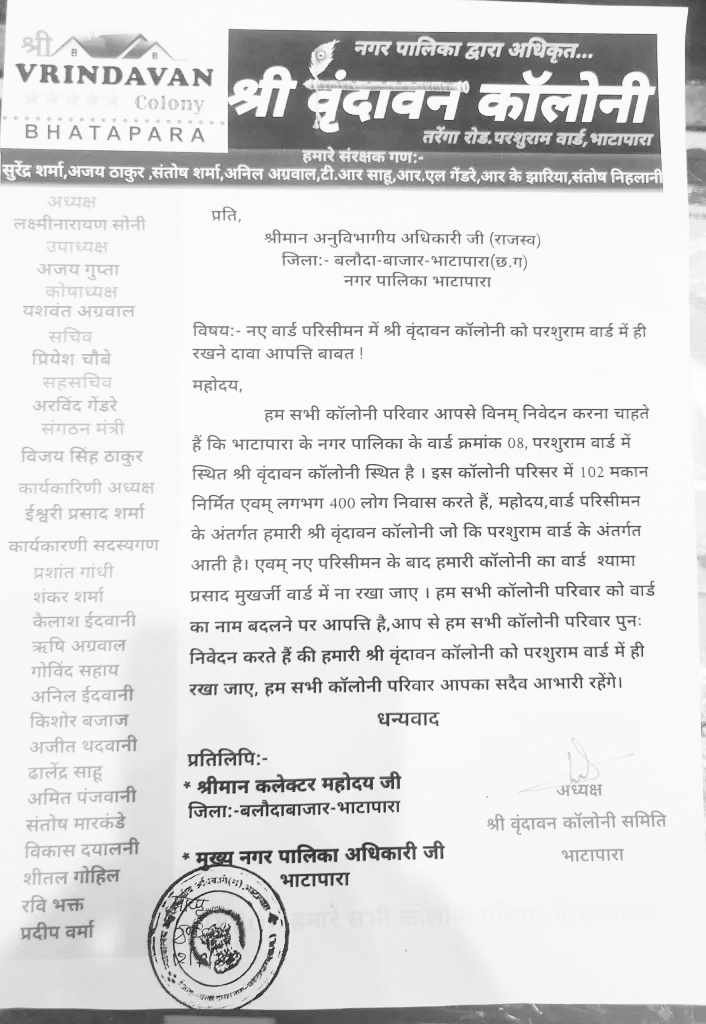 श्री
VRINDAVAN
Colony
BHATAPARA
नगर पालिका द्वारा अधिकृत...
श्री वृंदावन कॉलोनी
तरेंगा रोड.परशुराम वार्ड,भाटापारा
हमारे संरक्षक गण:-
सुरेंद्र शर्मा,अजय ठाकुर ,संतोष शर्मा,अनिल अग्रवाल,टी.आर साहू,आर.एल गेंडरे,आर के झारिया,संतोष निहलानी
अध्यक्ष
लक्ष्मीनारायण सोनी
उपाध्यक्ष
अजय गुप्ता
कोषाध्यक्ष
यशवंत अग्रवाल
सचिव
प्रियेश चौबे
सहसचिव
अरविंद गेंडरे
संगठन मंत्री
विजय सिंह ठाकुर
कार्यकारिणी अध्यक्ष
ईश्वरी प्रसाद शर्मा
कार्यकारणी सदस्यगण
प्रशांत गांधी
शंकर शर्मा
कैलाश ईदवानी
ऋषि अग्रवाल
गोविंद सहाय
अनिल ईदवानी
किशोर बजाज
अजीत थदवानी
ढालेंद्र साहू
अमित पंजवानी
संतोष मारकंडे
विकास दयालनी
शीतल गोहिल
रवि भक्त
प्रदीप वर्मा
प्रति,
श्रीमान अनुविभागीय अधिकारी जी (राजस्व)
जिला:- बलौदा-बाजार-भाटापारा(छ.ग)
नगर पालिका भाटापारा
विषय:- नए वार्ड परिसीमन में श्री वृंदावन कॉलोनी को परशुराम वार्ड में ही
रखने दावा आपत्ति बाबत !
महोदय,
हम सभी कॉलोनी परिवार आपसे विनम् निवेदन करना चाहते
हैं कि भाटापारा के नगर पालिका के वार्ड क्रमांक 08, परशुराम वार्ड में
स्थित श्री वृंदावन कॉलोनी स्थित है । इस कॉलोनी परिसर में 102 मकान
निर्मित एवम् लगभग 400 लोग निवास करते हैं, महोदय,वार्ड परिसीमन
के अंतर्गत हमारी श्री वृंदावन कॉलोनी जो कि परशुराम वार्ड के अंतर्गत
आती है। एवम् नए परिसीमन के बाद हमारी कॉलोनी का वार्ड श्यामा
प्रसाद मुखर्जी वार्ड में ना रखा जाए । हम सभी कॉलोनी परिवार को वार्ड
का नाम बदलने पर आपत्ति है,आप से हम सभी कॉलोनी परिवार पुनः
निवेदन करते हैं की हमारी श्री वृंदावन कॉलोनी को परशुराम वार्ड में ही
रखा जाए, हम सभी कॉलोनी परिवार आपका सदैव आभारी रहेंगे।
धन्यवाद
प्रतिलिपि:-
* श्रीमान कलेक्टर महोदय जी
जिला:-बलौदाबाजार-भाटापारा
* मुख्य नगर पालिका अधिकारी जी
भाटापारा
अध्यक्ष
श्री वृंदावन कॉलोनी समिति
भाटापारा
हमारे सभी कॉलोनी परिवार के हस्ताक्षर